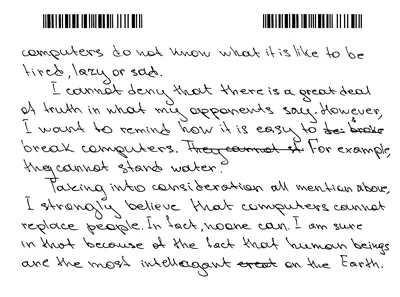 computers do not know what it is like to be
tired, lazy or sad.
I cannot deny that there is a great deal
of truth in what my opponents say. However,
I want to remind how it is easy to
break computers. They cannot st. For example,
they cannot stand water.
Taking into consideration all mention above,
I strongly believe that computers cannot
replace people. In fact, noone can. I am sure
in that because of the fact that human beings
are the most intellagant creat on the Earth.